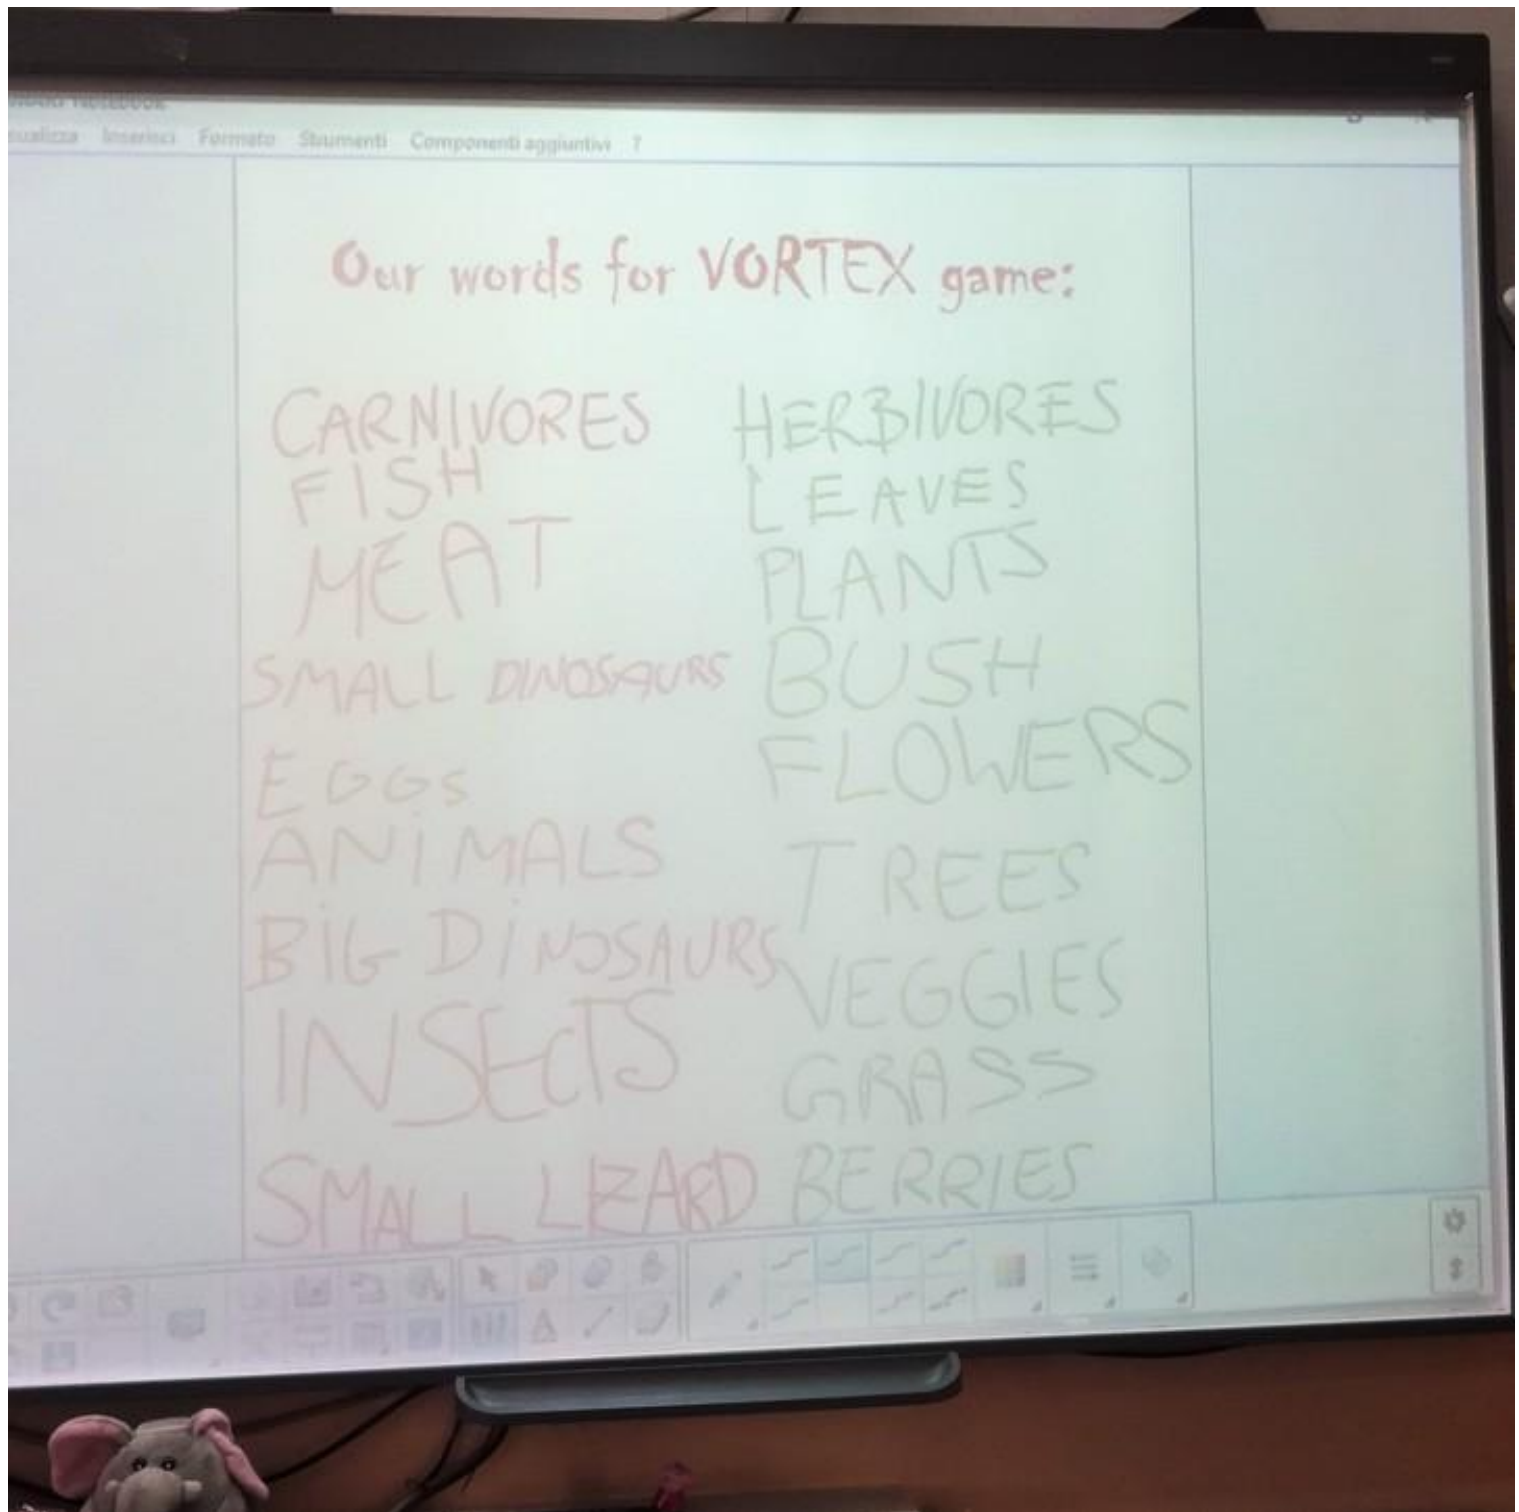 Notebook
Inserisci Formato Strumenti Componenti aggiuntivi ?
Our words for VORTEX game:
CARNIVORES
FISH
MEAT
SMALL DINOSAURS
EGGS
ANiMALS
BiG DiNOSAURS
INSEcTS
SMALL LIZARD
HERBIVORES
LEAVES
PLANTS
BUSH
FLOWERS
TREES
VEGGIES
GRASS
BERRIES